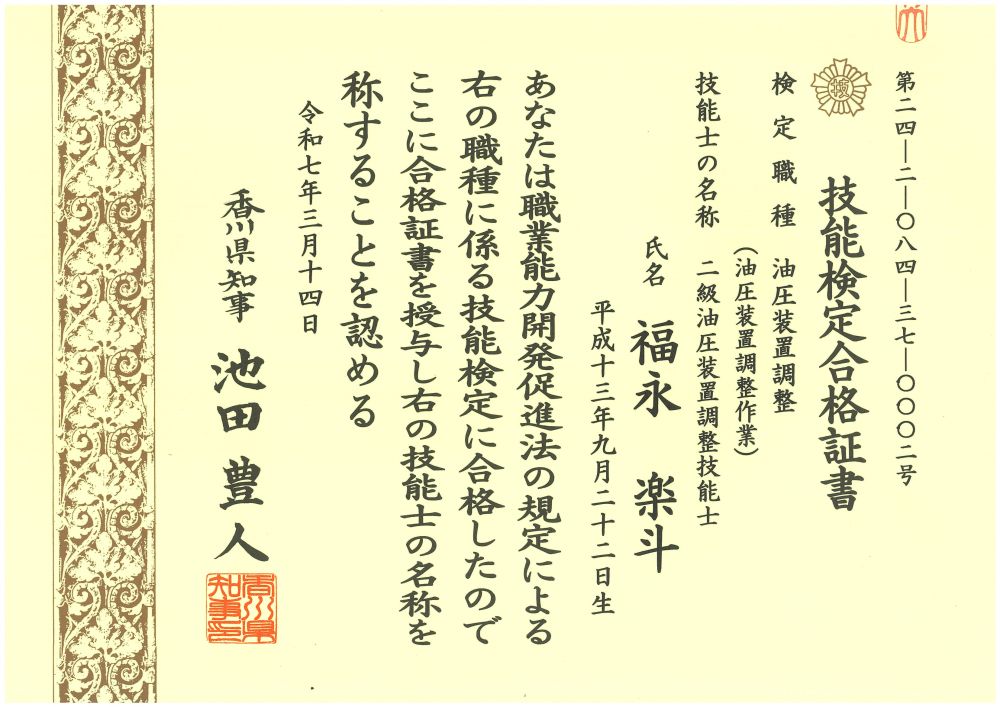 第二四―二―〇八四―三七―〇〇〇二号
技能検定合格証書
検定職種　油圧装置調整
（油圧装置調整作業）
技能士の名称　二級油圧装置調整技能士
氏名　福永　楽斗
平成十三年九月二十二日生
あなたは職業能力開発促進法の規定による
右の職種に係る技能検定に合格したので
ここに合格証書を授与し右の技能士の名称を
称することを認める
令和七年三月十四日
香川県知事　池田豊人
香川県
知事印